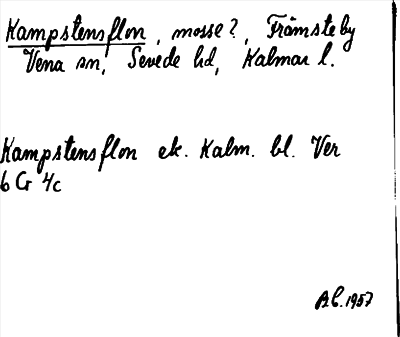 Kampstensflon, mosse?, Främsteby
Vena sn, Sevede hd, Kalmar l.
Kampstensflon ek. Kalm. bl. Ver
6 G 4c
1957